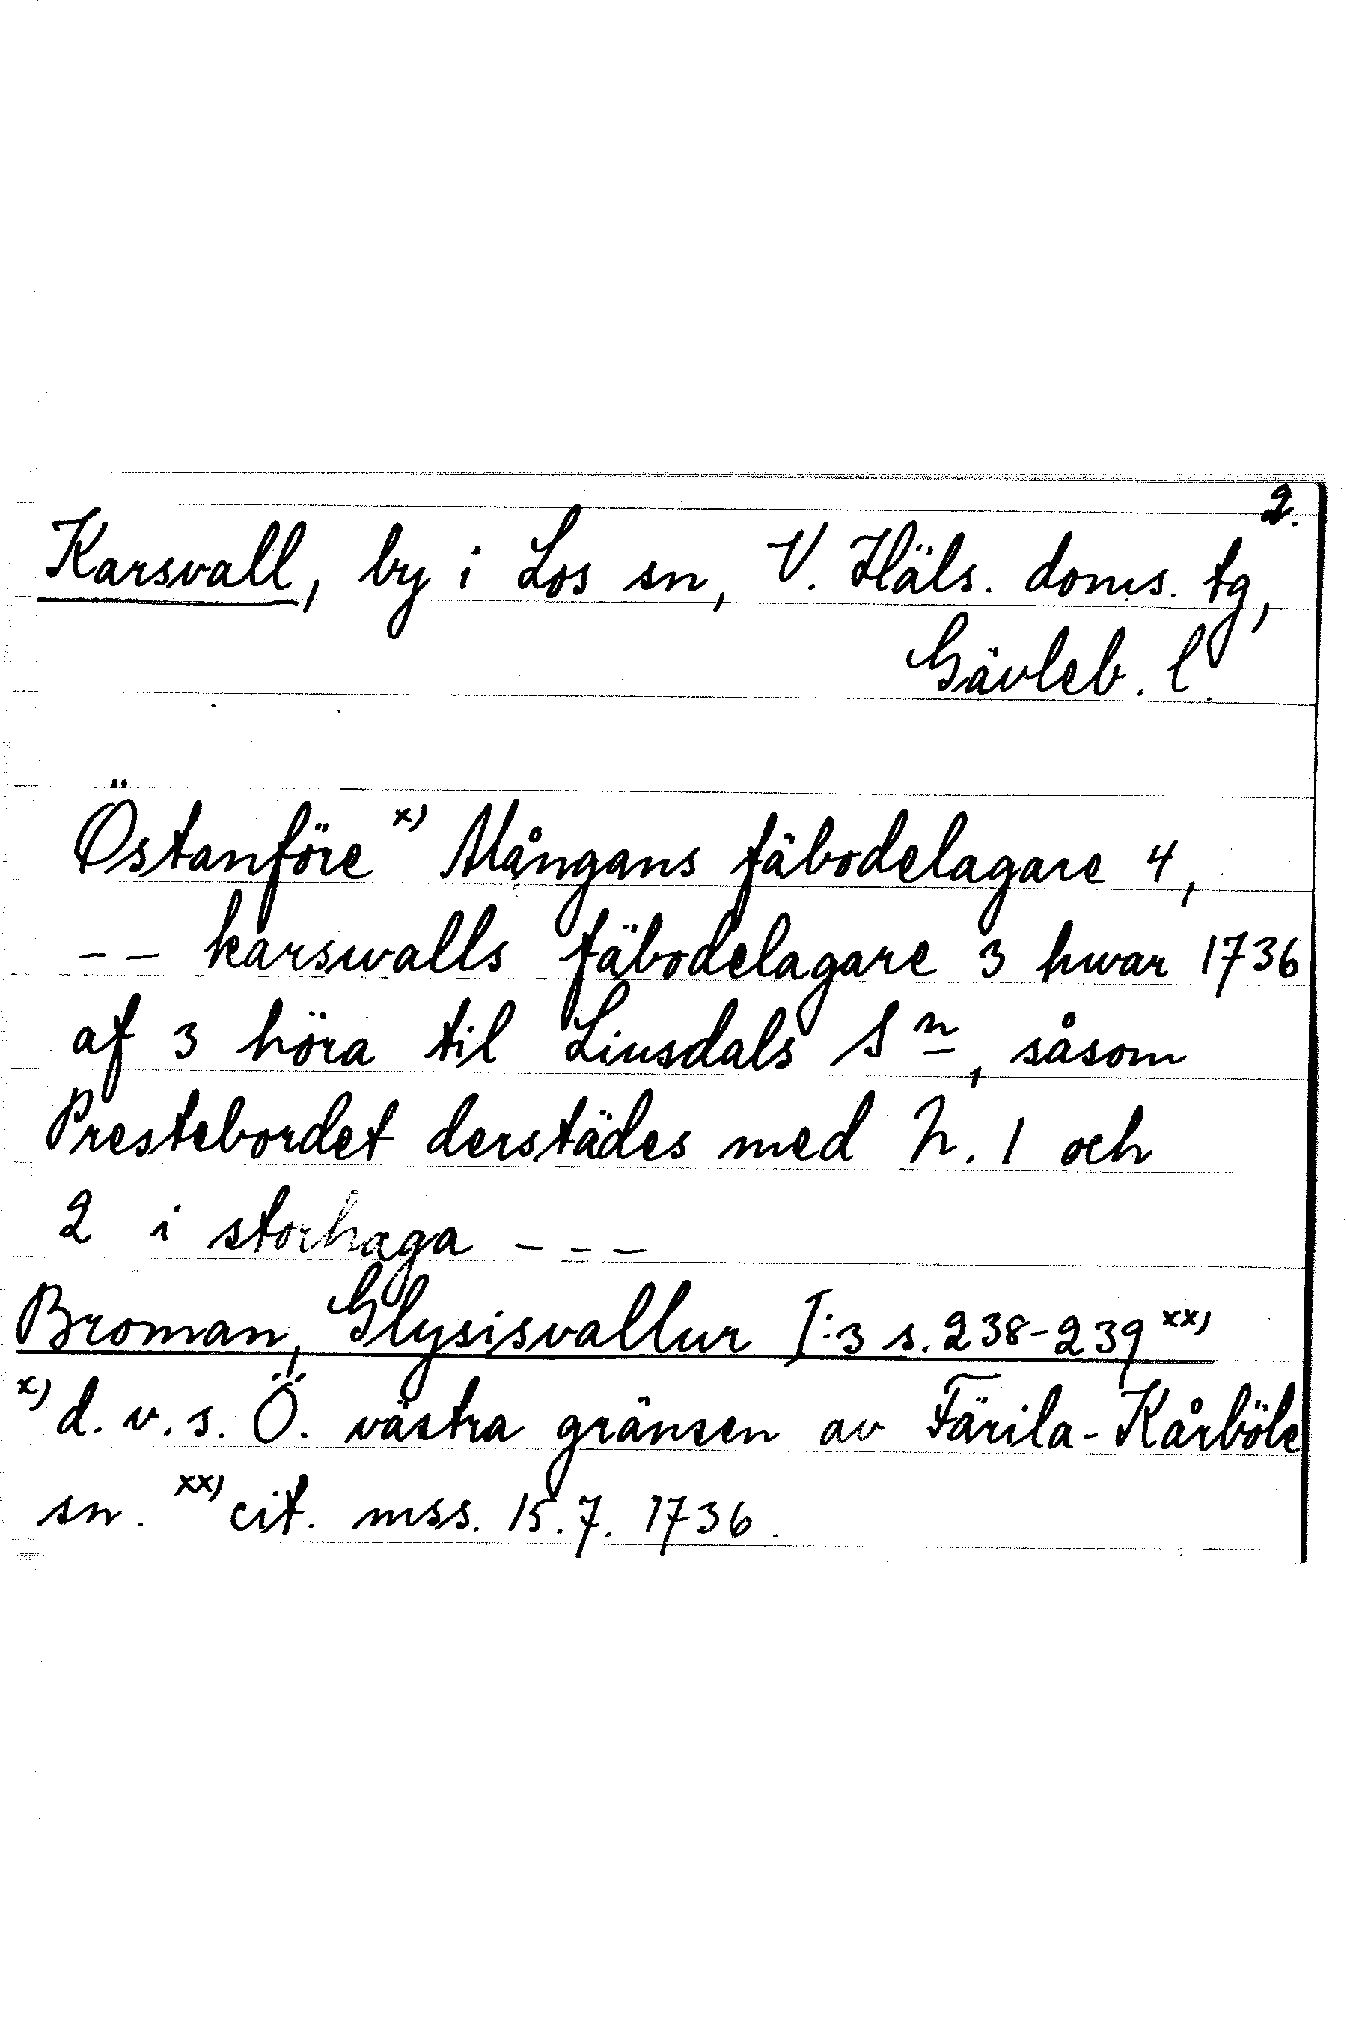 2.
Karsvall, by i Los sn, V. Häls. doms. tg,
Gävleb. l.
Östanföre x) Mångans fäbodelagare 4,
-- karswalls fäbodelagare 3 hwar 1736
af 3 höra til Liusdals Sn, såsom
Prestebordet derstädes med N. 1 och
2 i storhaga ---
Broman, Glysisvallur I:3 s. 238-239 xx)
x) d. v. s. Ö. västra gränsen av Färila-Kårböle
sn. xx) cit. mss. 15.7. 1736.